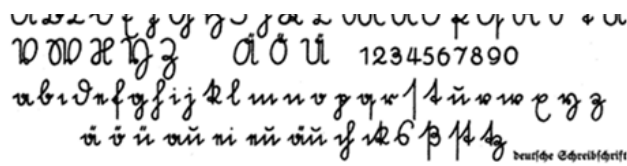 V W X Y Z Ä Ö Ü 1234567890
a b c d e f g h i j k l m n o p q r ſ t u v w x y z
ä ö ü au ei eu äu ch ck s ß ſt tz
deutſche Schreibſchrift